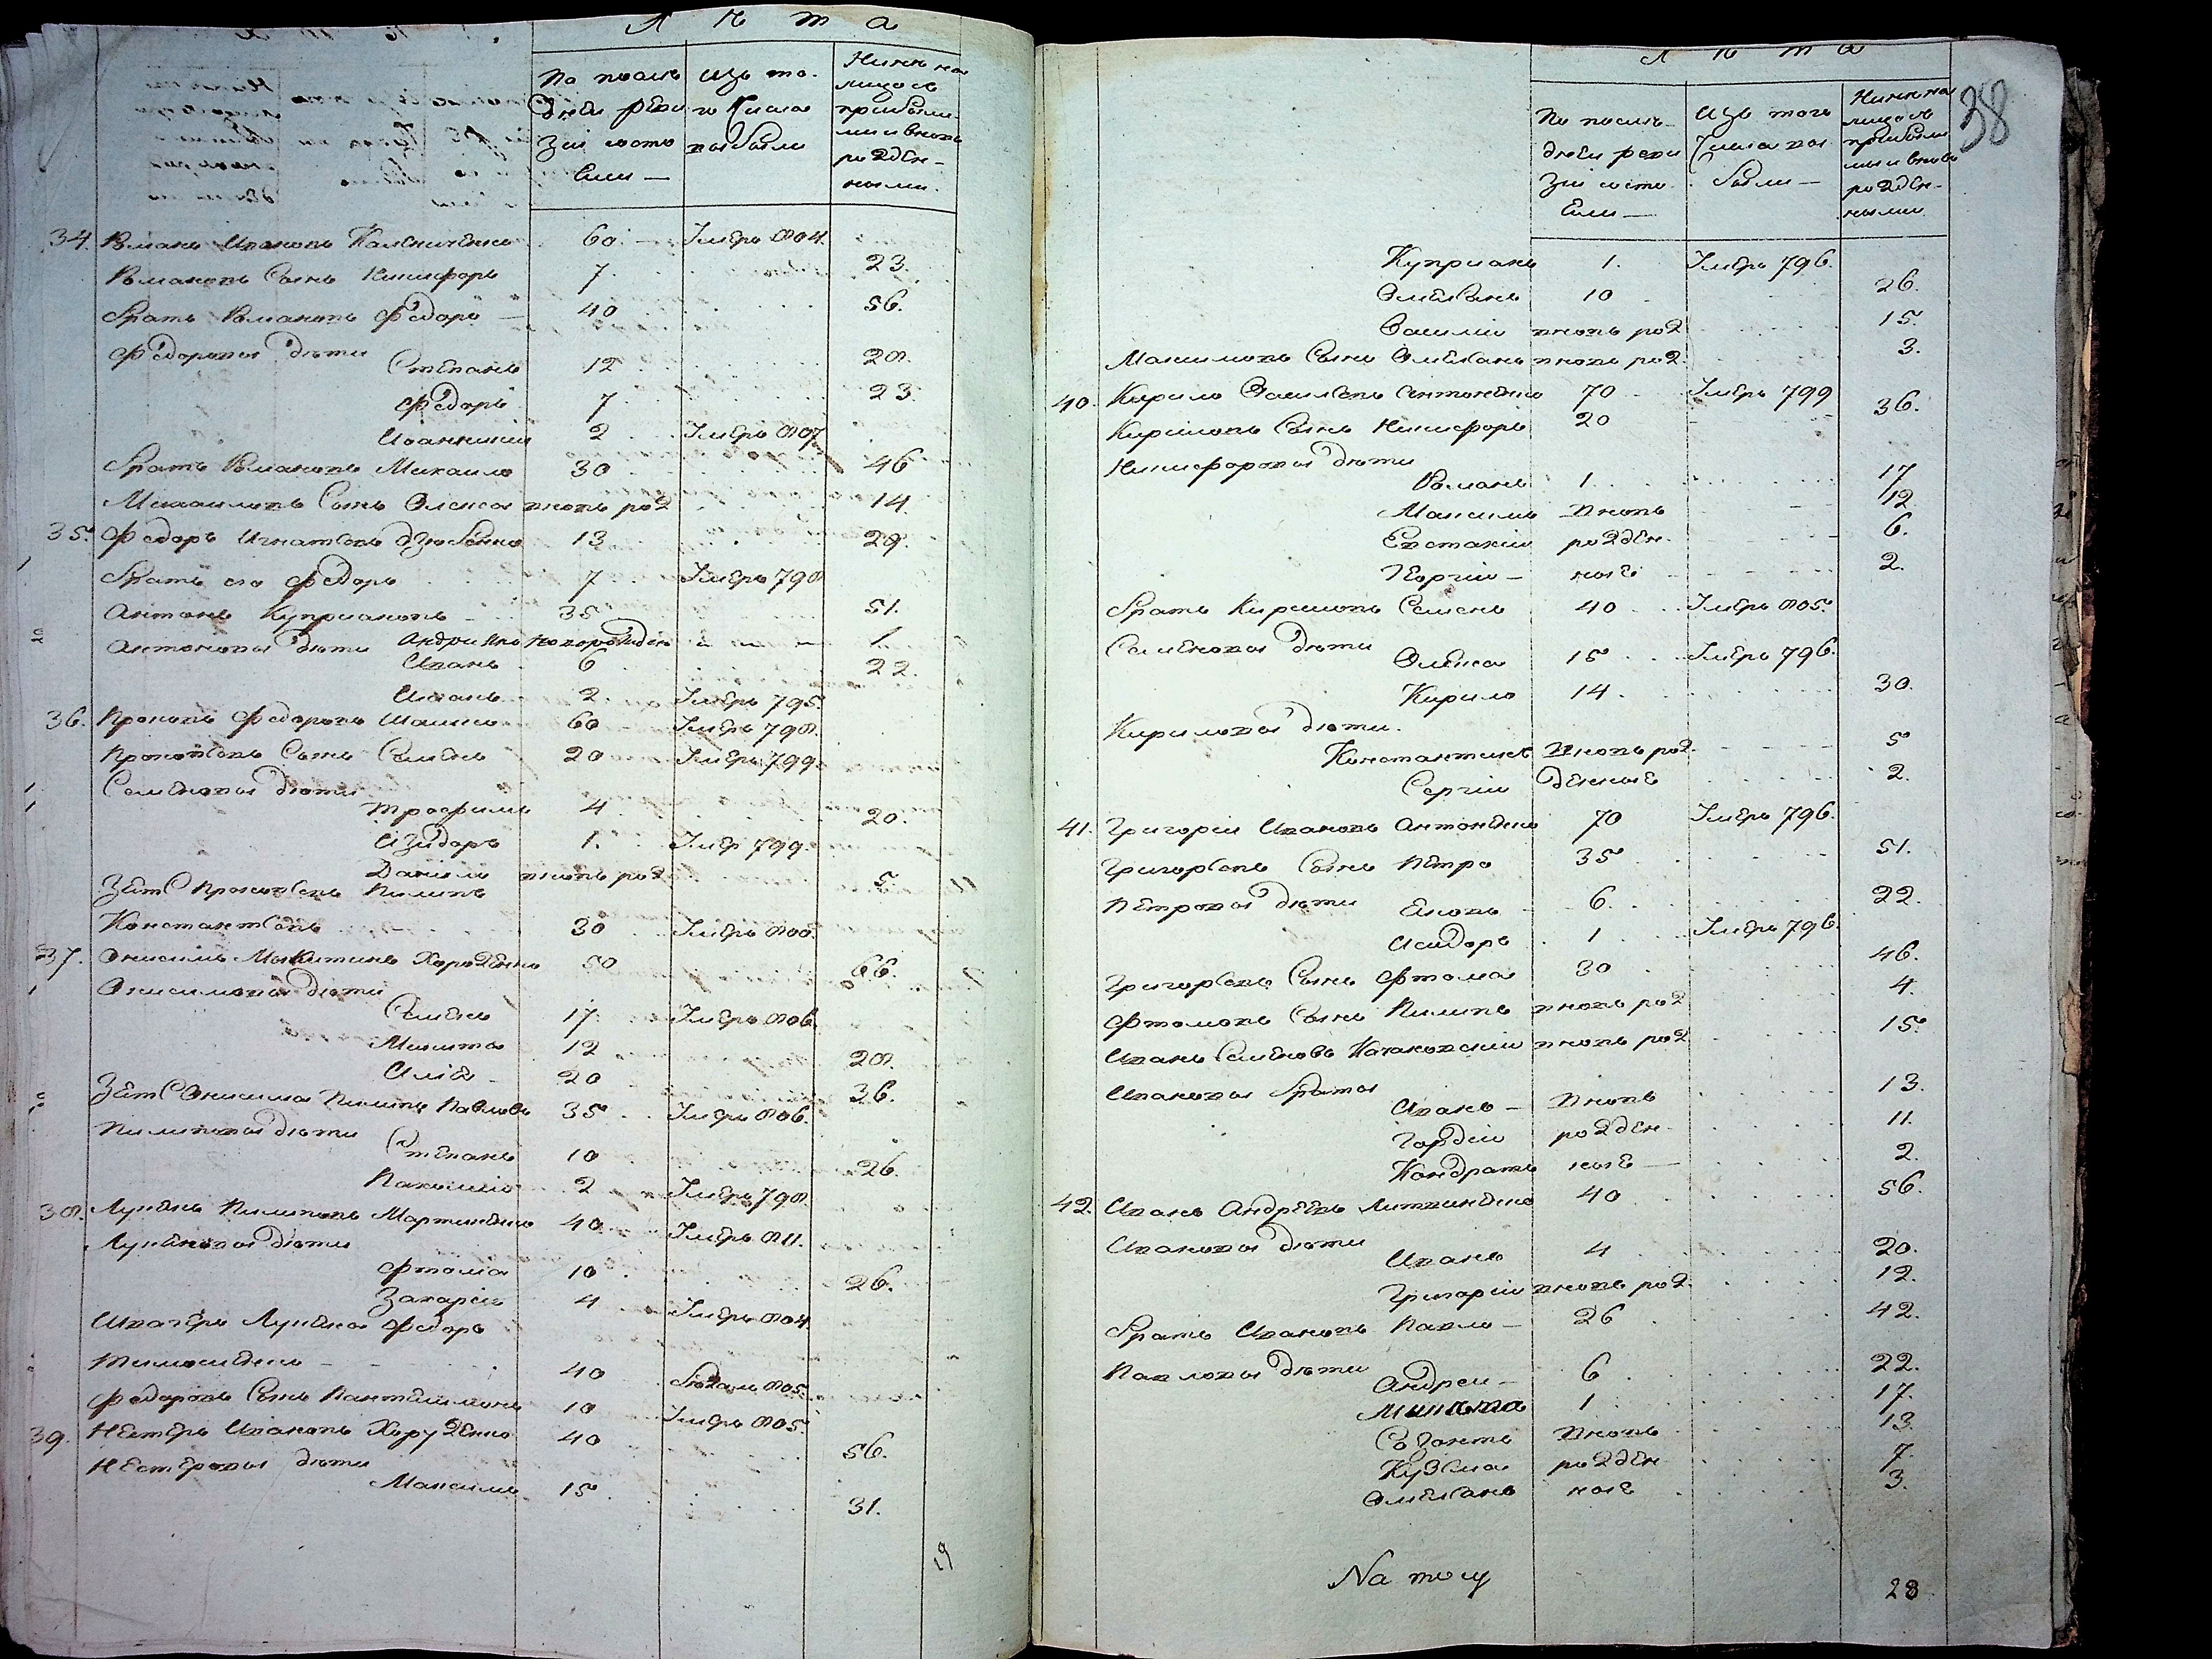 Лѣта
По послѣдней ревизіи состояли
Изъ того числа выбыли
Нынѣ на лицо съ прибылыми и вновь рожденными
34. Романъ Ивановъ Калениченко 60 Умеръ 804.
Романовъ Сынъ Никифоръ 7 23.
Братъ Романовъ Федоръ 40 56.
Федоровы дѣти
Степанъ 12 28.
Федоръ 7 23.
Иоанникий 2 Умеръ 807.
Братъ Романовъ Михайло 30 46
Михайловъ Сынъ Олекса вновь рож 14.
35. Федоръ Игнатовъ Дзюбенко 13 29.
Братъ его Федоръ 7 Умеръ 798
Антонъ Куприановъ 35 51.
Антоновы дѣти Андріянъ новорожден 1
Иванъ 6 22.
Иванъ 2 Умеръ 795.
36. Прокопъ Федоровъ 60 Умеръ 798.
Прокоповъ Сынъ Семенъ 20 Умеръ 799.
Семеновы дѣти
Трофимъ 4 20.
Изидоръ 1. Умер 799.
Данило вновь рож 5
Зять Прокоповъ Пилипъ
Константовъ 30 Умеръ 800.
37. Онисимъ Микитинъ Хоруженко 50 66.
Онисимовы дѣти
Семенъ 17 Умеръ 806.
Микита 12 28.
Илія 20 36.
Зять Онисима Пилипъ Павловъ 35 Умеръ 806.
Пилиповы дѣти
Степанъ 10 26.
Пахомій 2 Умеръ 798.
38. Лукьянъ Пилиповъ Мартиненко 40 Умеръ 811.
Лукьяновы дѣти
Фтома 10 26.
Захарій 4 Умеръ 804.
Шваґеръ Лукьяна Федоръ
Тимошенко 40 Бежалъ 805.
Федоровъ Сынъ Пантелимонъ 10 Умеръ 805.
39. Нестеръ Ивановъ Хоруженко 40 56.
Нестеровы дѣти
Максимъ 15 31.
19
38
Лѣта
По послѣдней ревизіи состояли
Изъ того числа выбыли
Нынѣ на лицо съ прибылыми и вновь рожденными
Куприанъ 1. Умеръ 796.
Омельянъ 10 26.
Василій вновь рож 15.
Максимовъ Сынъ Омельянъ вновь рож 3.
40. Кирило Васильевъ Антоненко 70 Умеръ 799
Кириловъ Сынъ Никифоръ 20 36.
Никифоровы дѣти
Романъ 1 17
Максимъ вновь 12
Евстахій рожден- 6.
Георгій ные 2.
Братъ Кириловъ Семенъ 40 Умеръ 805.
Семеновы дѣти
Олекса 15 Умеръ 796.
Кирило 14 30.
Кириловы дѣти
Константинъ вновь рож- 5
Сергій денные 2.
41. Григорій Ивановъ Антоненко 70 Умеръ 796.
Григорьевъ Сынъ Петро 35 51.
Петровы дѣти
6. 22.
Исидоръ 1 Умеръ 796.
Григорьевъ Сынъ Фтома 30 46.
Фтомовъ Сынъ Пилипъ вновь рож 4.
Иванъ Семеновъ вновь рож 15.
Ивановы братья
Иванъ вновь 13.
Гордій рожден- 11.
Кондратъ ные 2.
42. Иванъ Андреевъ Литвиненко 40 56.
Ивановы дѣти
Иванъ 4 20.
Григорій вновь рож 12.
Братъ Ивановъ Павло 26 42.
Павловы дѣти
Андрей 6 22.
Микита 1 17.
Созонтъ вновь 13.
Кузьма рожден 7
Омельянъ ные 3.
На тому
28